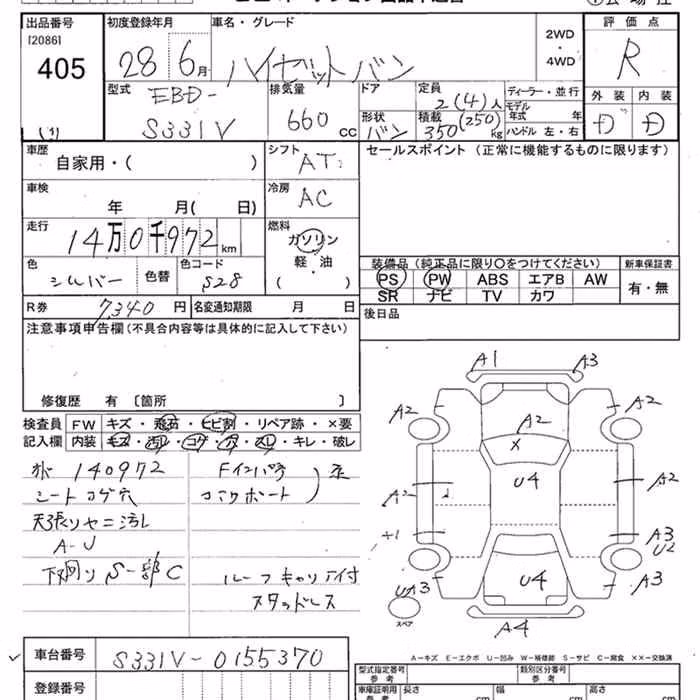 出品番号
[2086]
405
初度登録年月
28 6月
車名・グレード
ハイゼットバン
2WD
・
4WD
評価点
R
外装 内装
D D
型式
EBD-
S331V
排気量
660 cc
ドア
形状
バン
定員
2(4)人
積載
350(250)kg
ディーラー・並行
モデル
年式 年
ハンドル 左・右
車歴
自家用・( )
シフト
AT
セールスポイント (正常に機能するものに限ります)
車検
年 月( 日)
冷房
AC
走行
14万0千972km
燃料
ガソリン
軽・油
( )
色
シルバー
色替
色コード
S28
装備品 (純正品に限り○をつけてください)
PS PW ABS エアB AW
SR ナビ TV カワ
新車保証書
有・無
R券 7,340円
名変通知期限 月 日
後日品
注意事項申告欄 (不具合内容等は具体的に記入して下さい)
修復歴 有 [箇所 ]
検査員
記入欄
FW キズ・飛石・ヒビ割・リペア跡・×要
内装 キズ・汚れ・コゲ・穴・スレ・キレ・破レ
140972
シートコゲ穴
天張りヤニ汚れ
A-U
下廻りS一部C
Fインパネ
コアサポート
ルーフキャリア付
スタッドレス
A1 A3
A2 A2 A2
X
U4
A2 A2
A3
U2
UA3 U4 A3
スペア
A4
A-キズ E-エクボ U-凹み W-補修跡 S-サビ C-腐食 ××-交換済
車台番号
S331V-0155370
登録番号
型式指定番号
参考
類別区分番号
参考
車庫証明用
参考
長さ cm
幅 cm
高さ cm